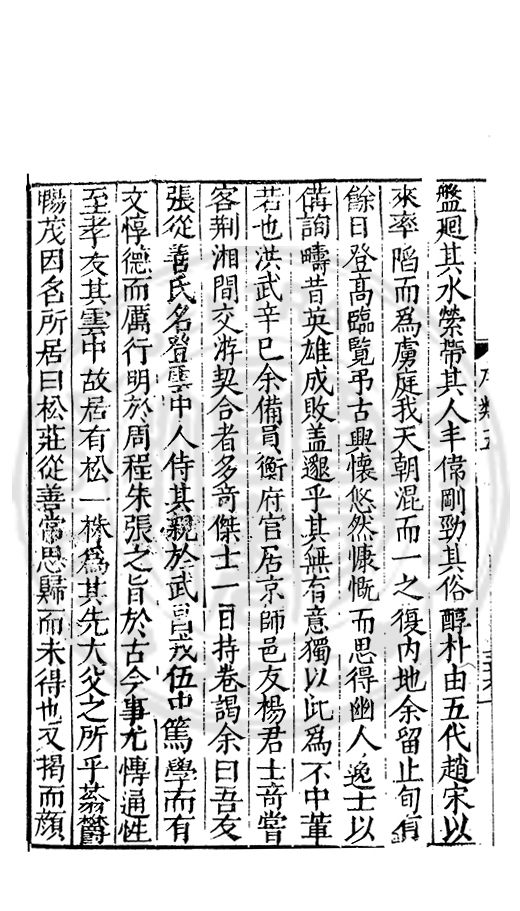 盤𢌞其水縈帶其人丰偉剛勁其俗醇朴由五代趙宋以
來率陷而爲虜庭我天朝混而一之復内地余留止旬有
餘日登髙臨覽弔古興懷悠然慷慨而思得幽人逸士以
備詢疇昔英雄成敗盖邈乎其無有意獨以此爲不中華
若也洪武辛巳余備員衡府官居京師邑友楊君士竒嘗
客荆湘間交游契合者多竒傑士一日持卷謁余曰吾友
張從善氏名登雲中人侍其親於武昌戎伍中篤學而有
文惇德而厲行明於周程朱張之旨於古今事尤慱通性
至孝友其雲中故居有松一株爲其先大父之所手蓊鬱
暢茂因名所居曰松莊從善常思歸而未得也又揭而顔